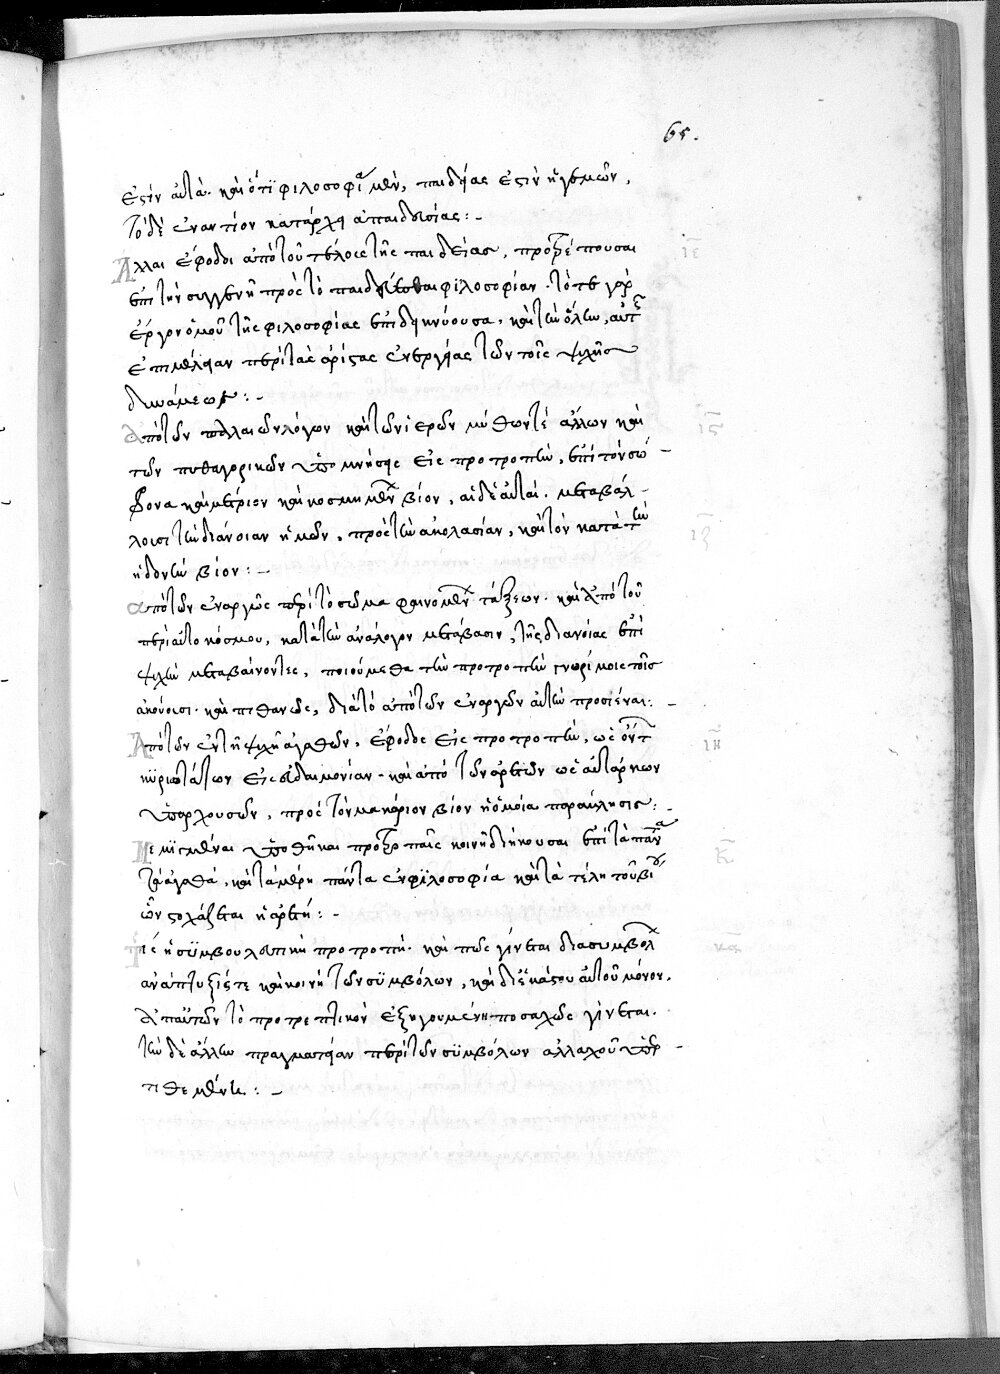 65.
ἐστὶν αὐτὰ. καὶ ὅτι φιλοσοφία μὲν, παιδείας ἐστὶν ἡγεμὼν,
τὸ δὲ ἐναντίον κατάρχει ἀπαιδευσίας:-
Ἄλλαι ἔφοδοι ἀπὸ τοῦ τέλους τῆς παιδείας, προτρέπουσαι
ἐπὶ τὴν συγγενῆ πρὸς τὸ παιδεύεσθαι φιλοσοφίαν. τό τε γὰρ
ἔργον ὁμοῦ τῆς φιλοσοφίας ἐπιδεικνύουσα, καὶ τὴν ὅλην αὐτῆς
ἐπιμέλειαν περὶ τὰς ἀρίστας ἐνεργείας τῶν τοῖς ψυχῆς
δυνάμεων:-
Ἀπὸ τῶν παλαιῶν λόγων καὶ τῶν ἱερῶν μύθων τέ ἄλλων καὶ
τῶν πυθαγορικῶν ὑπομνήσεις εἰς προτροπὴν, ἐπὶ τὸν σώ-
φρονα καὶ μέτριον καὶ κοσμημένον βίον, αἱ δὲ αὐταὶ. μεταβάλ-
λουσι τὴν διάνοιαν ἡμῶν, πρὸς τὴν ἀκολασίαν, καὶ τὸν κατὰ τὴν
ἡδονὴν βίον:-
ἀπὸ τῶν ἐναργῶς περὶ τὸ σῶμα φαινομένων τάξεων. καὶ ἀπὸ τοῦ
περὶ αὐτὸ κόσμου, κατὰ τὴν ἀνάλογον μετάβασιν, τῆς διανοίας ἐπὶ
ψυχὴν μεταβαίνοντες, ποιούμεθα τὴν προτροπὴν γνωρίμοις τοῖς
ἀκούουσι. καὶ πιθανῶς, διὰ τὸ ἀπὸ τῶν ἐναργῶν αὐτὴν προσιέναι:-
Ἀπὸ τῶν ἐν τῇ ψυχῇ ἀγαθῶν, ἔφοδος εἰς προτροπὴν, ὡς ὄντων
κυριωτάτων εἰς εὐδαιμονίαν. καὶ ἀπὸ τῶν ἀρετῶν ὡς αὐτάρκων
ὑπαρχουσῶν, πρὸς τὸν μακάριον βίον ἡ ὁμοία παράκλησις:-
μεμιγμέναι ὑποθῆκαι προτροπαῖς κοινῇ διήκουσαι ἐπὶ τὰ πάντα
τἀγαθὰ, καὶ τὰ μέρη πάντα ἐν φιλοσοφία καὶ τὰ τέλη τοῦ βίου
ὧν στοχάζεται ἡ ἀρετή:-
τίς ἡ συμβουλευτικὴ προτροπὴ. καὶ πῶς γίνεται διὰ συμβόλων
ἀνάπτυξίς τε καὶ κοινὴ τῶν συμβόλων, καὶ δι' ἑκάστου αὐτοῦ μόνον.
ἀπαὐτῶν τὸ προτρεπτικὸν ἐξηγουμένη ποσαχῶς γίνεται.
τὴν δὲ ἄλλην πραγματείαν περὶ τῶν συμβόλων ἀλλαχοῦ ὑπερ-
τιθεμένη:-
ιε
ις
ιζ
ιη
κ